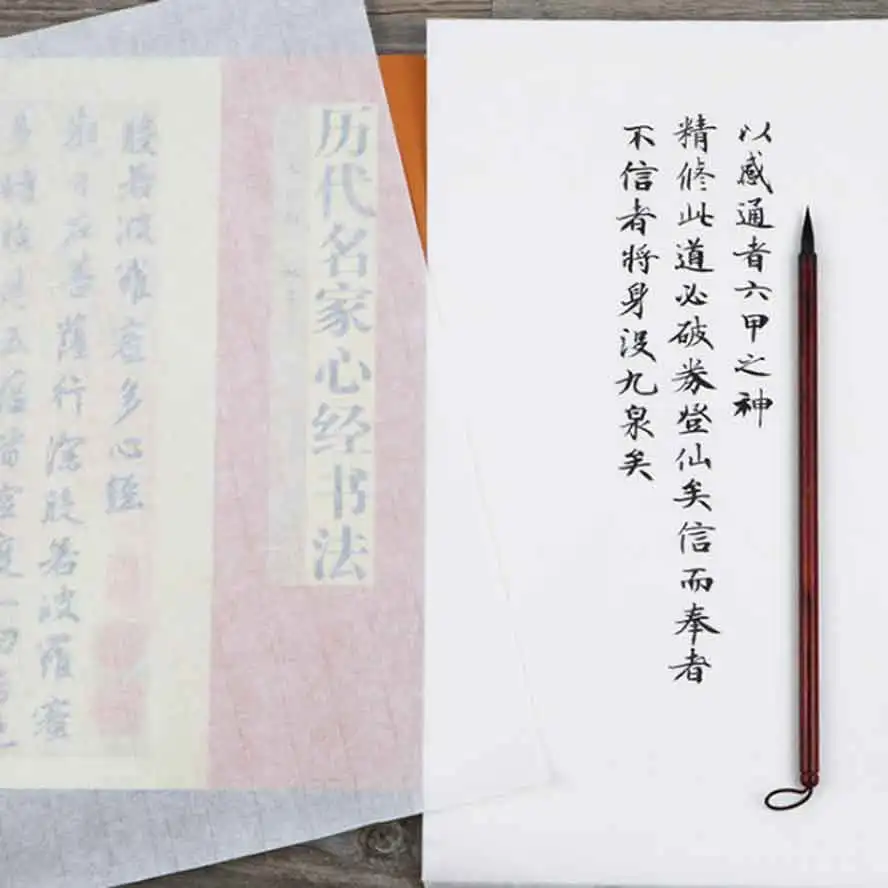 以感通者六甲之神
精修此道必破券登仙矣信而奉者
不信者将身没九泉矣
历代名家心经书法
般若波羅蜜多心經
觀自在菩薩行深般若波羅蜜
多時照見五蘊皆空度一切苦厄